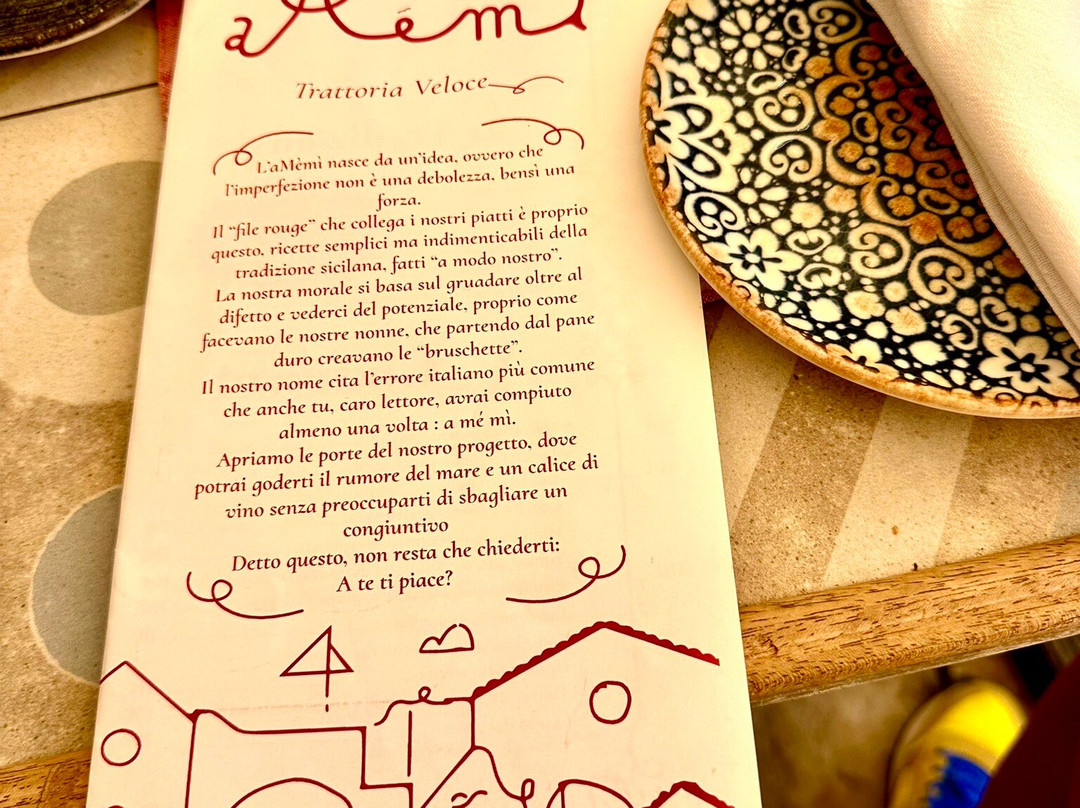 aMémì
Trattoria Veloce
L'aMèmì nasce da un'idea, ovvero che
l'imperfezione non è una debolezza, bensì una
forza.
Il "file rouge" che collega i nostri piatti è proprio
questo, ricette semplici ma indimenticabili della
tradizione sicilana, fatti "a modo nostro".
La nostra morale si basa sul gruadare oltre al
difetto e vederci del potenziale, proprio come
facevano le nostre nonne, che partendo dal pane
duro creavano le "bruschette".
Il nostro nome cita l'errore italiano più comune
che anche tu, caro lettore, avrai compiuto
almeno una volta : a mé mì.
Apriamo le porte del nostro progetto, dove
potrai goderti il rumore del mare e un calice di
vino senza preoccuparti di sbagliare un
congiuntivo
Detto questo, non resta che chiederti:
A te ti piace?